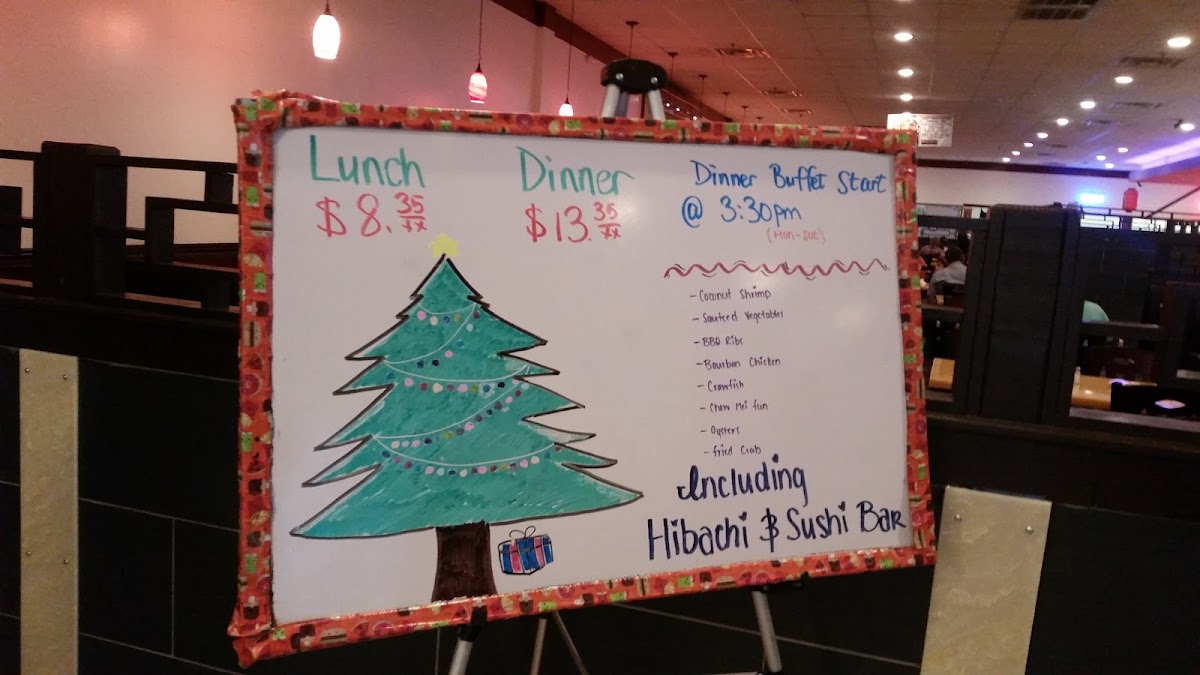 Lunch
$8.35/xx
Dinner
$13.35/xx
Dinner Buffet Start
@ 3:30pm
(Mon-Sat)
- Coconut Shrimp
- Sauteed Vegetables
- BBQ Ribs
- Bourbon Chicken
- Crawfish
- Chow Mei fun
- Oysters
- fried Crab
Including
Hibachi & Sushi Bar